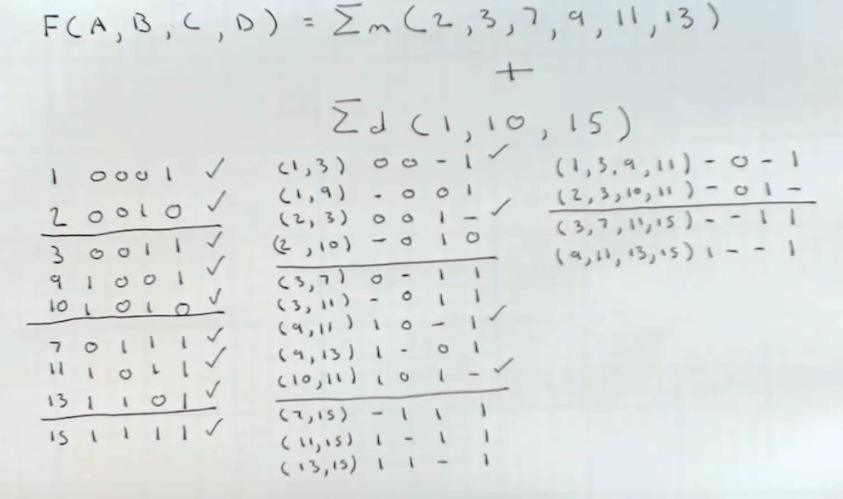 F(A,B,C,D) = Σm(2,3,7,9,11,13)
+
Σd(1,10,15)
1 0001 ✓
2 0010 ✓
3 0011 ✓
9 1001 ✓
10 1010 ✓
7 0111 ✓
11 1011 ✓
13 1101 ✓
15 1111 ✓
(1,3) 00-1 ✓
(1,9) -001
(2,3) 001- ✓
(2,10) -010
(3,7) 0-11
(3,11) -011
(9,11) 10-1 ✓
(9,13) 1-01
(10,11) 101- ✓
(7,15) -111
(11,15) 1-11
(13,15) 11-1
(1,3,9,11) -0-1
(2,3,10,11) -01-
(3,7,11,15) --11
(9,11,13,15) 1--1